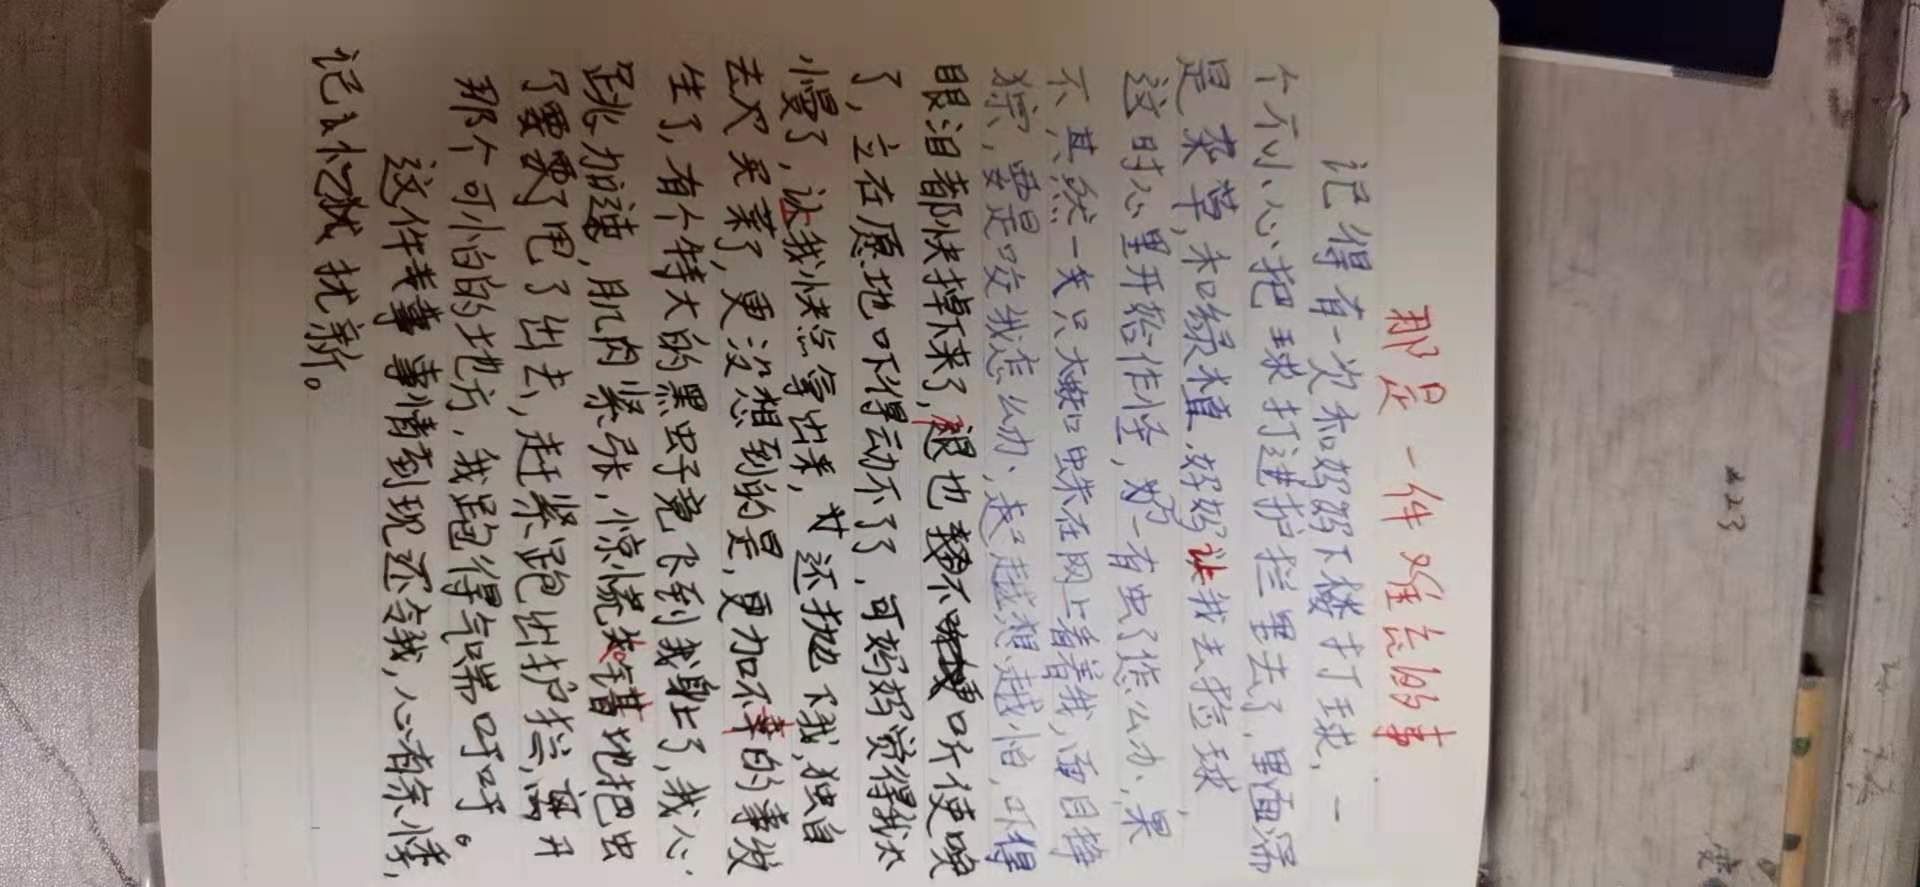 那是一件难忘的事
记得有一次和妈妈下楼打球，一
个不小心把球打进护拦里去了，里面满
是杂草，和绿植，妈妈让我去捡球，
这时心里开始作怪，万一有虫了怎么办，果
不其然一只大蜘蛛在网上看着我，面目狰
狞，要是咬我怎么办，越想越怕，吓得
眼泪都快掉下来了，腿也不听使唤
了，立在原地吓得动不了了，可妈妈觉得我太
慢了，让我快点拿出来，还抛下我，独自
去买菜了，更没想到的是，更加不幸的事发
生了，有个特大的黑虫子竟飞到我身上了，我心
跳加速，肌肉紧张，惊慌失措地把虫
了出去，赶紧跑出护拦，离开
那个可怕的地方，我跑得气喘吁吁。
这件事情到现还令我，心有余悸，
记忆犹新。